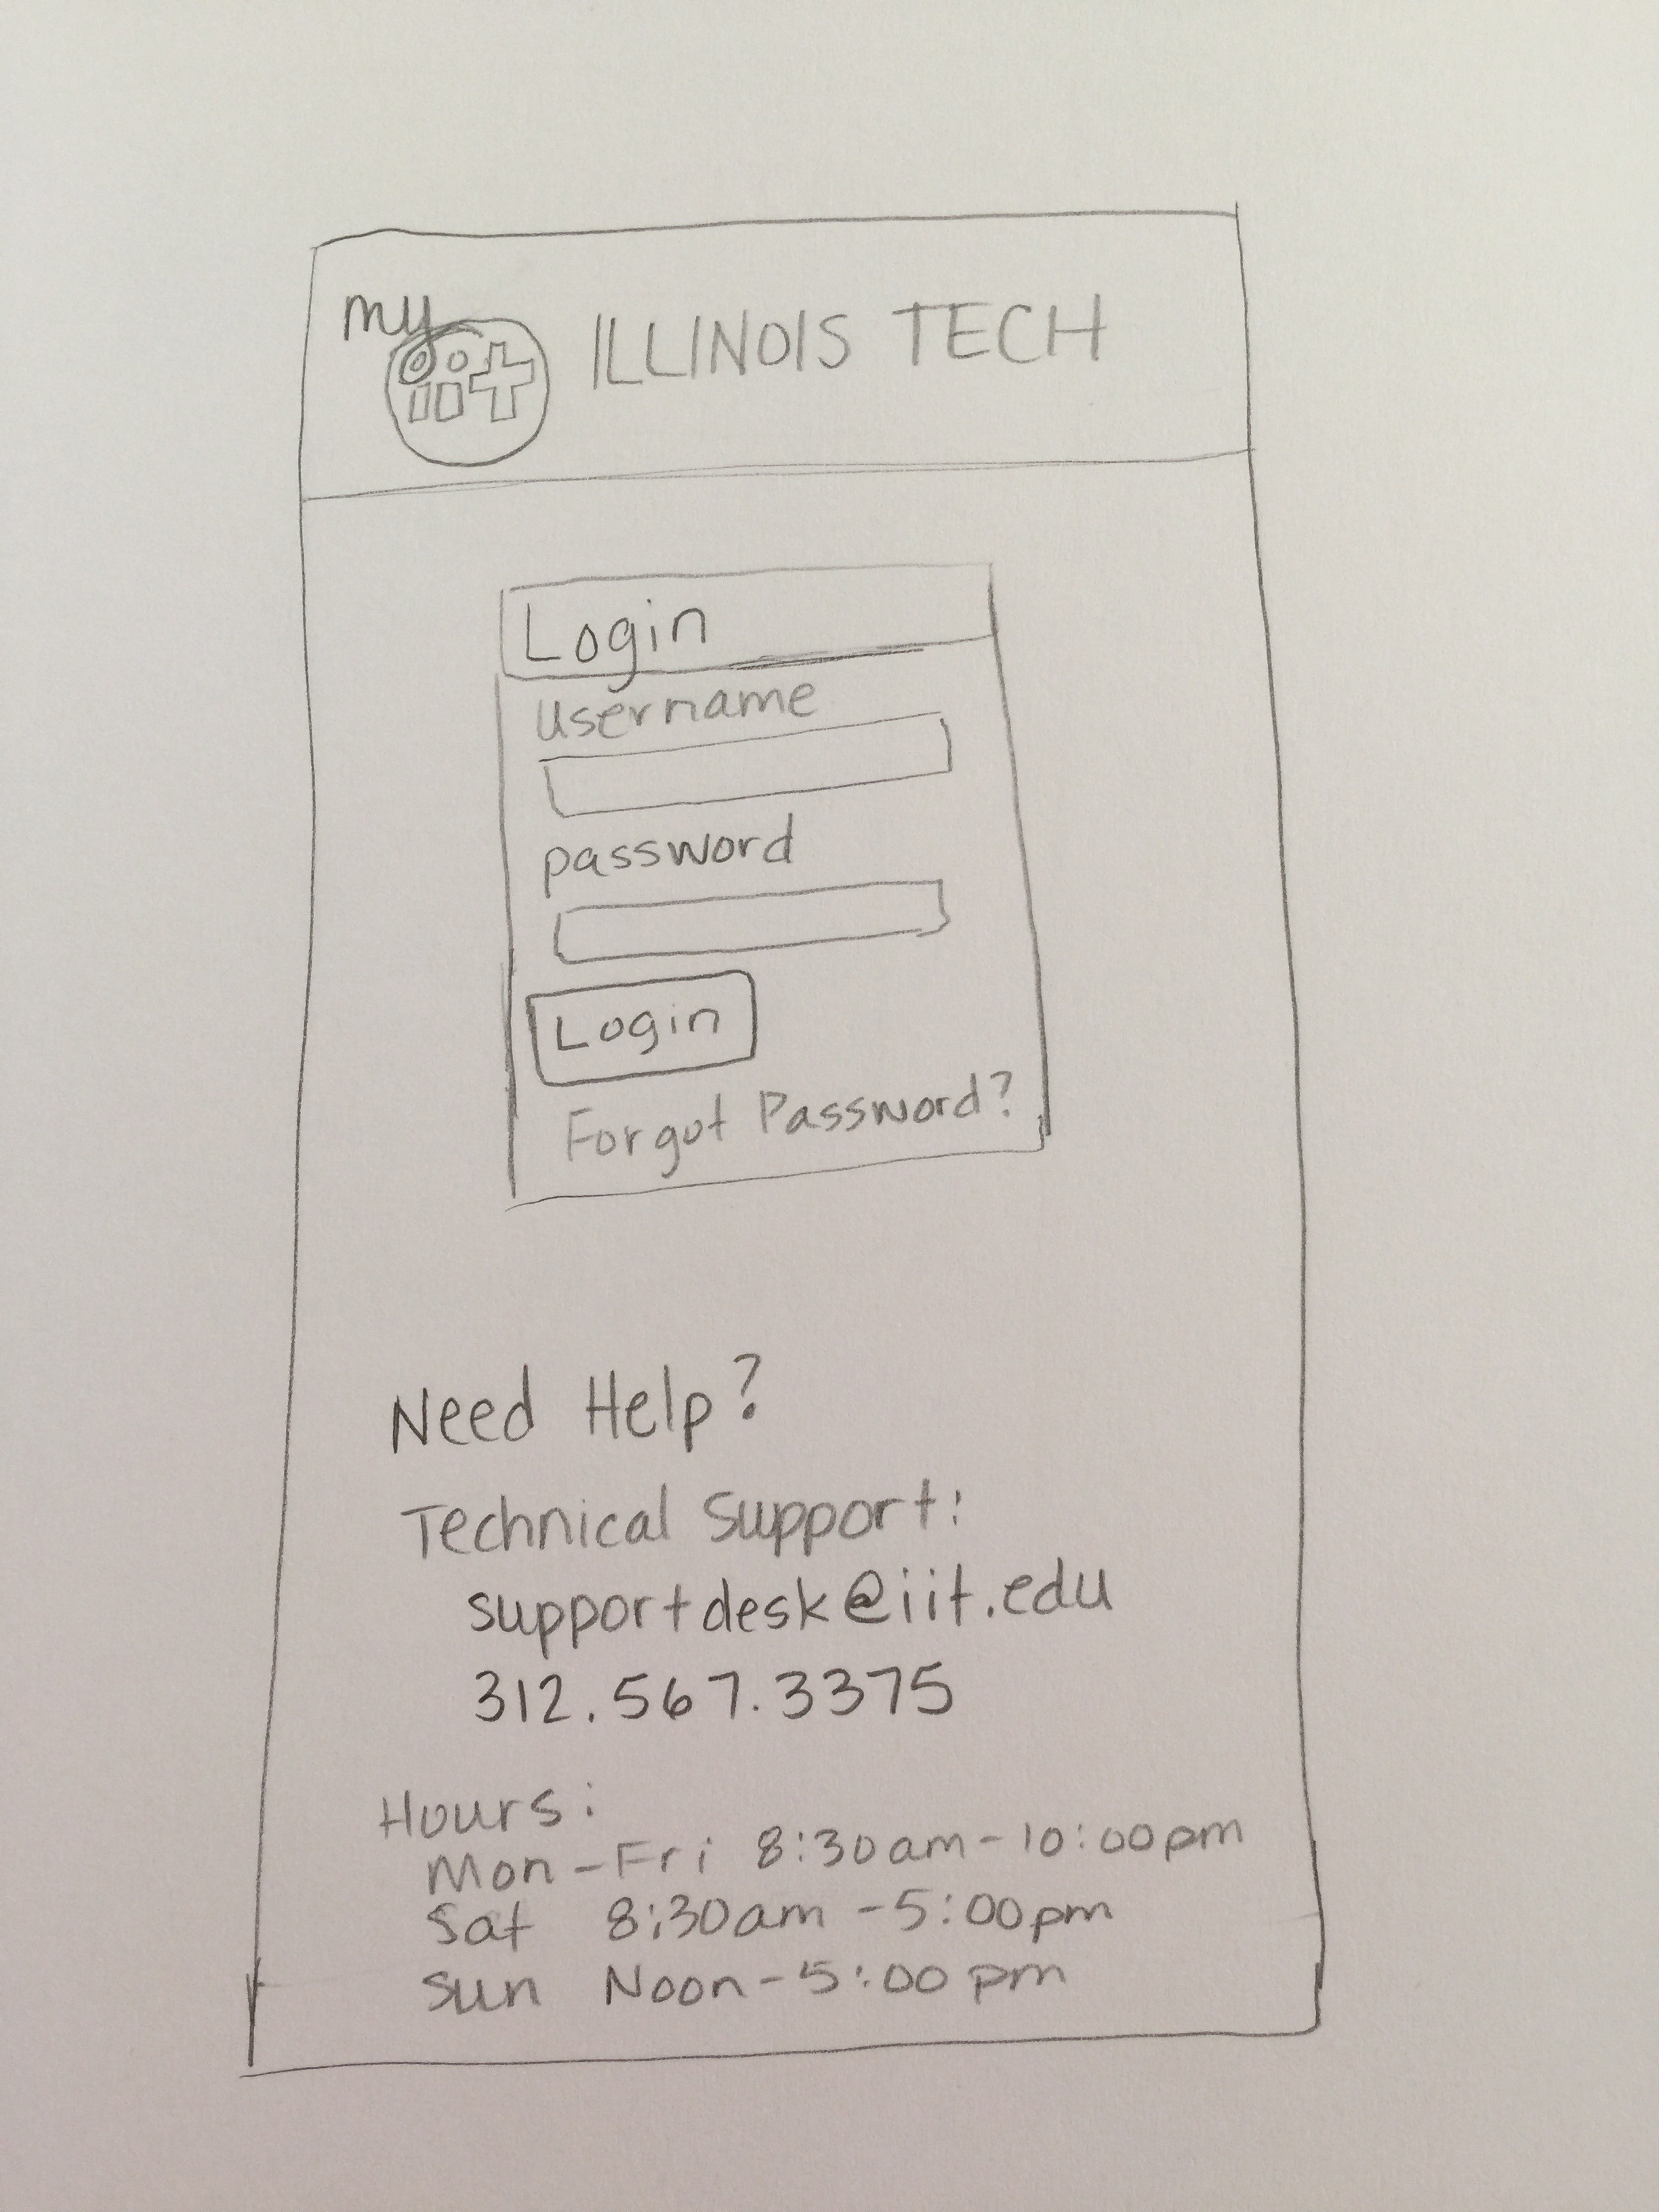 my
iit ILLINOIS TECH
Login
username
password
Login
Forgot Password?
Need Help?
Technical Support:
supportdesk@iit.edu
312.567.3375
Hours:
Mon-Fri 8:30am-10:00pm
Sat 8:30am-5:00pm
Sun Noon-5:00pm